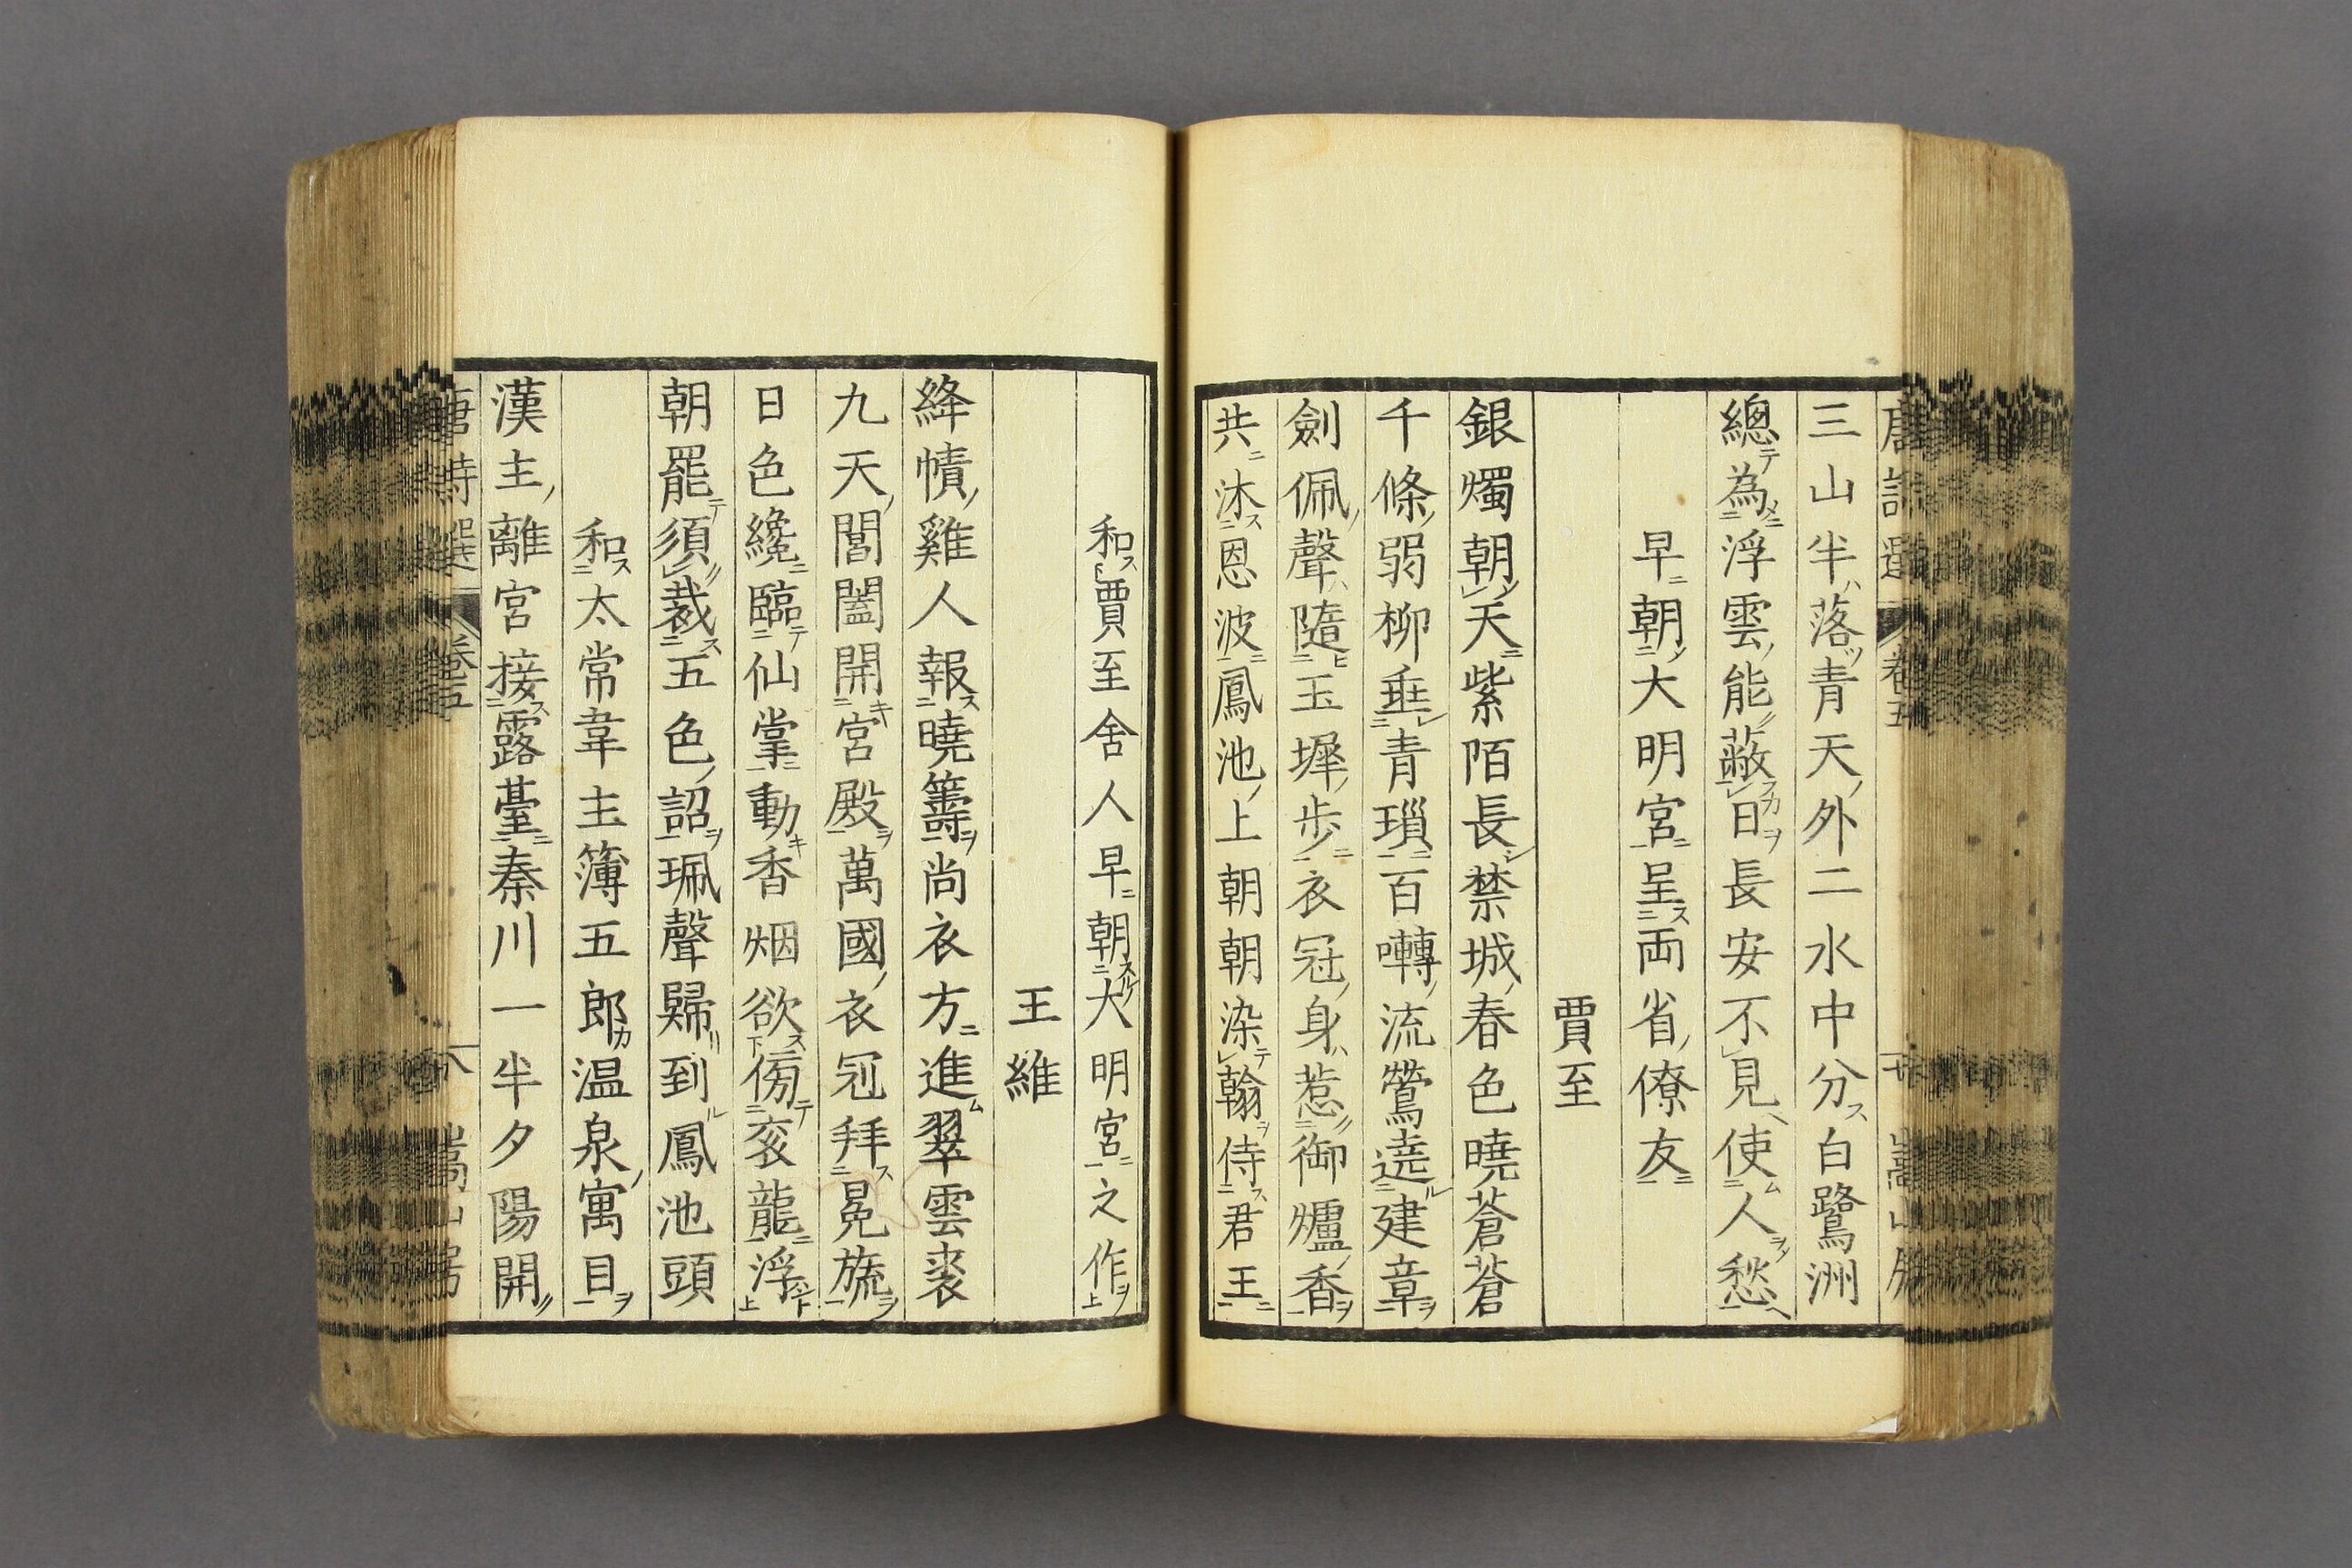 三山半落青天外二水中分白鷺洲
總為浮雲能蔽日長安不見使人愁
早朝大明宮呈両省僚友
賈至
銀燭朝天紫陌長禁城春色曉蒼蒼
千條弱柳垂青瑣百囀流鶯遶建章
劍佩聲隨玉墀步衣冠身惹御爐香
共沐恩波鳳池上朝朝染翰侍君王
和賈至舍人早朝大明宮之作
王維
絳幘雞人報曉籌尚衣方進翠雲裘
九天閶闔開宮殿萬國衣冠拜冕旒
日色纔臨仙掌動香烟欲傍衮龍浮
朝罷須裁五色詔珮聲歸到鳳池頭
和太常韋主簿五郎温泉寓目
漢主離宮接露臺秦川一半夕陽開
唐詩選 卷五 八 嵩山房